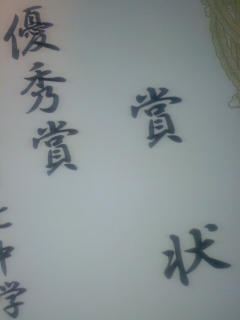 賞状
優秀賞
中学